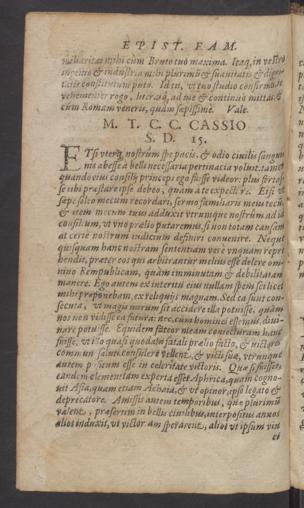 EPIST. FAM.
mihi cùm Bruto tuo maxima. Itaq; in vestro
ingenio & industria mihi plurimũ & suauitatis & digni-
tatis constitutum puto. Id tu, vt tuo studio confirmes, te
vehementer rogo, literasq́; ad me & continuò mittas, &
cùm Romam veneris, quàm sæpissimè. Vale.
M. T. C. C. CASSIO
S. D. 15.
ETsi vterq; nostrûm spe pacis, & odio ciuilis sangui-
nis abesse à belli necessaria pertinacia voluit, tamen
quando eius consilij princeps ego fuisse videor, plus fortas-
se tibi præstare ipse debeo, quàm à te expectare. Etsi vt
sæpe soleo mecum recordari, sermo familiaris meus tecũ
& item mecum tuus adduxit vtrunque nostrûm ad id
consilium, vt vno prælio putaremus, si non totam causam,
at certè nostrum iudicium definiri conuenire. Neque
quisquam hanc nostram sententiam verè vnquam repre-
hendit, præter eos qui arbitrantur melius esse deleri om-
nino Rempublicam, quàm imminutam & debilitatam
manere. Ego autem ex interitu eius nullam spem scilicet
mihi proponebam, ex reliquijs magnam. Sed ea sunt con-
secuta, vt magis mirum sit accidere illa potuisse, quàm
nos non vidisse ea futura: nec, cùm homines essemus, diui-
nare potuisse. Equidem fateor meam coniecturam hanc
fuisse, vt illo quasi quodam fatali prælio facto, & victores
communi saluti consulere vellent, & victi suæ, vtrunque
autem positum esse in celeritate victoris. Quæ si fuisset,
eandem clementiam experta esset Aphrica, quam cogno-
uit Asia, quam etiam Achaia, & vt opinor, ipso legato &
deprecatore. Amissis autem temporibus, quæ plurimũ
valent, præsertim in bellis ciuilibus, interpositus annus
alios induxit, vt victoriam sperarent, alios vt ipsum vin
ci